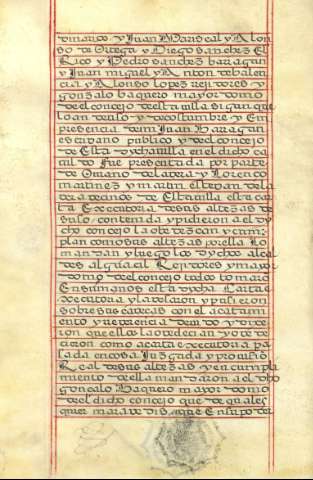 domarcos y Juan Mariscal y Alon
so de Ortega y Diego sanchez El
Rico y Pedro sanchez barragan
y Juan miguel y Anton de balen
cia y Alonso lopez rejidores y
gonzalo baquero mayor domo
del concejo de esta villa sigun que
lo an de uso y de costumbre y En
presencia de mi Juan barragan
escribano publico y del concejo
de Esta dycha villa en el dicho ca
bildo fue presentada por parte
de y Lorenco
martinez y martin estevan de la
dera vecinos de Esta villa este ca
rta Executoria de sus altezas de
suso contenda y pidieron al dy
cho concejo la obedezcan y cum
plan como sus altezas por ella lo
mandan y luego los dychos alcal
des alguacil Rejidores y mayor
domo del concejo todos tomaron
En sus manos esta dycha Carta e
xecutoria y la besaron y pusieron
sobre sus cabezas con el acatami
ento y reverencia devido y dixe
ron que ellos la obedecian y obede
cieron como a carta executora pa
sada en cosa Juzgada y promisio
Real de sus altezas y en cumpli
miento de ella mandaron al dho
gonzalo baquero mayor domo
del dicho concejo que de quales
quier maravedis que En su poder